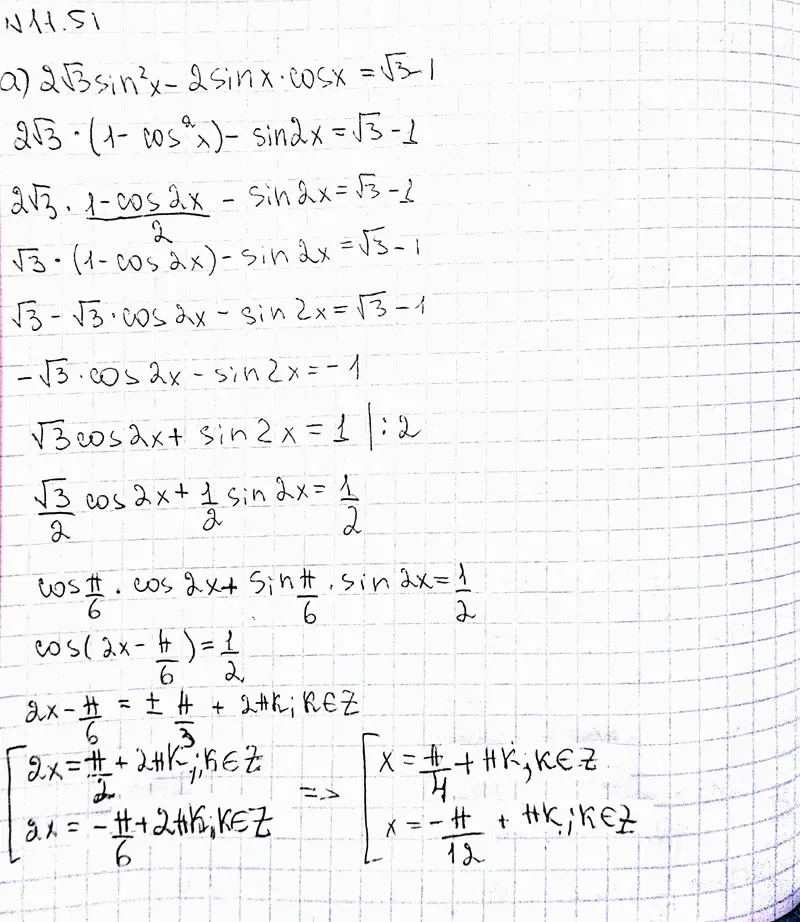 N 11.51
а) 2√3 sin²x - 2sinx·cosx = √3-1
2√3 · (1 - cos²x) - sin2x = √3 - 1
2√3 · (1-cos2x)/2 - sin2x = √3 - 1
√3 · (1-cos2x) - sin2x = √3 - 1
√3 - √3 · cos2x - sin2x = √3 - 1
-√3 · cos2x - sin2x = -1
√3cos2x + sin2x = 1 |:2
√3/2 cos2x + 1/2 sin2x = 1/2
cos π/6 · cos2x + sin π/6 · sin2x = 1/2
cos(2x - π/6) = 1/2
2x - π/6 = ± π/3 + 2πk; k∈Z
[ 2x = π/2 + 2πk; k∈Z => [ x = π/4 + πk; k∈Z
2x = -π/6 + 2πk; k∈Z x = -π/12 + πk; k∈Z